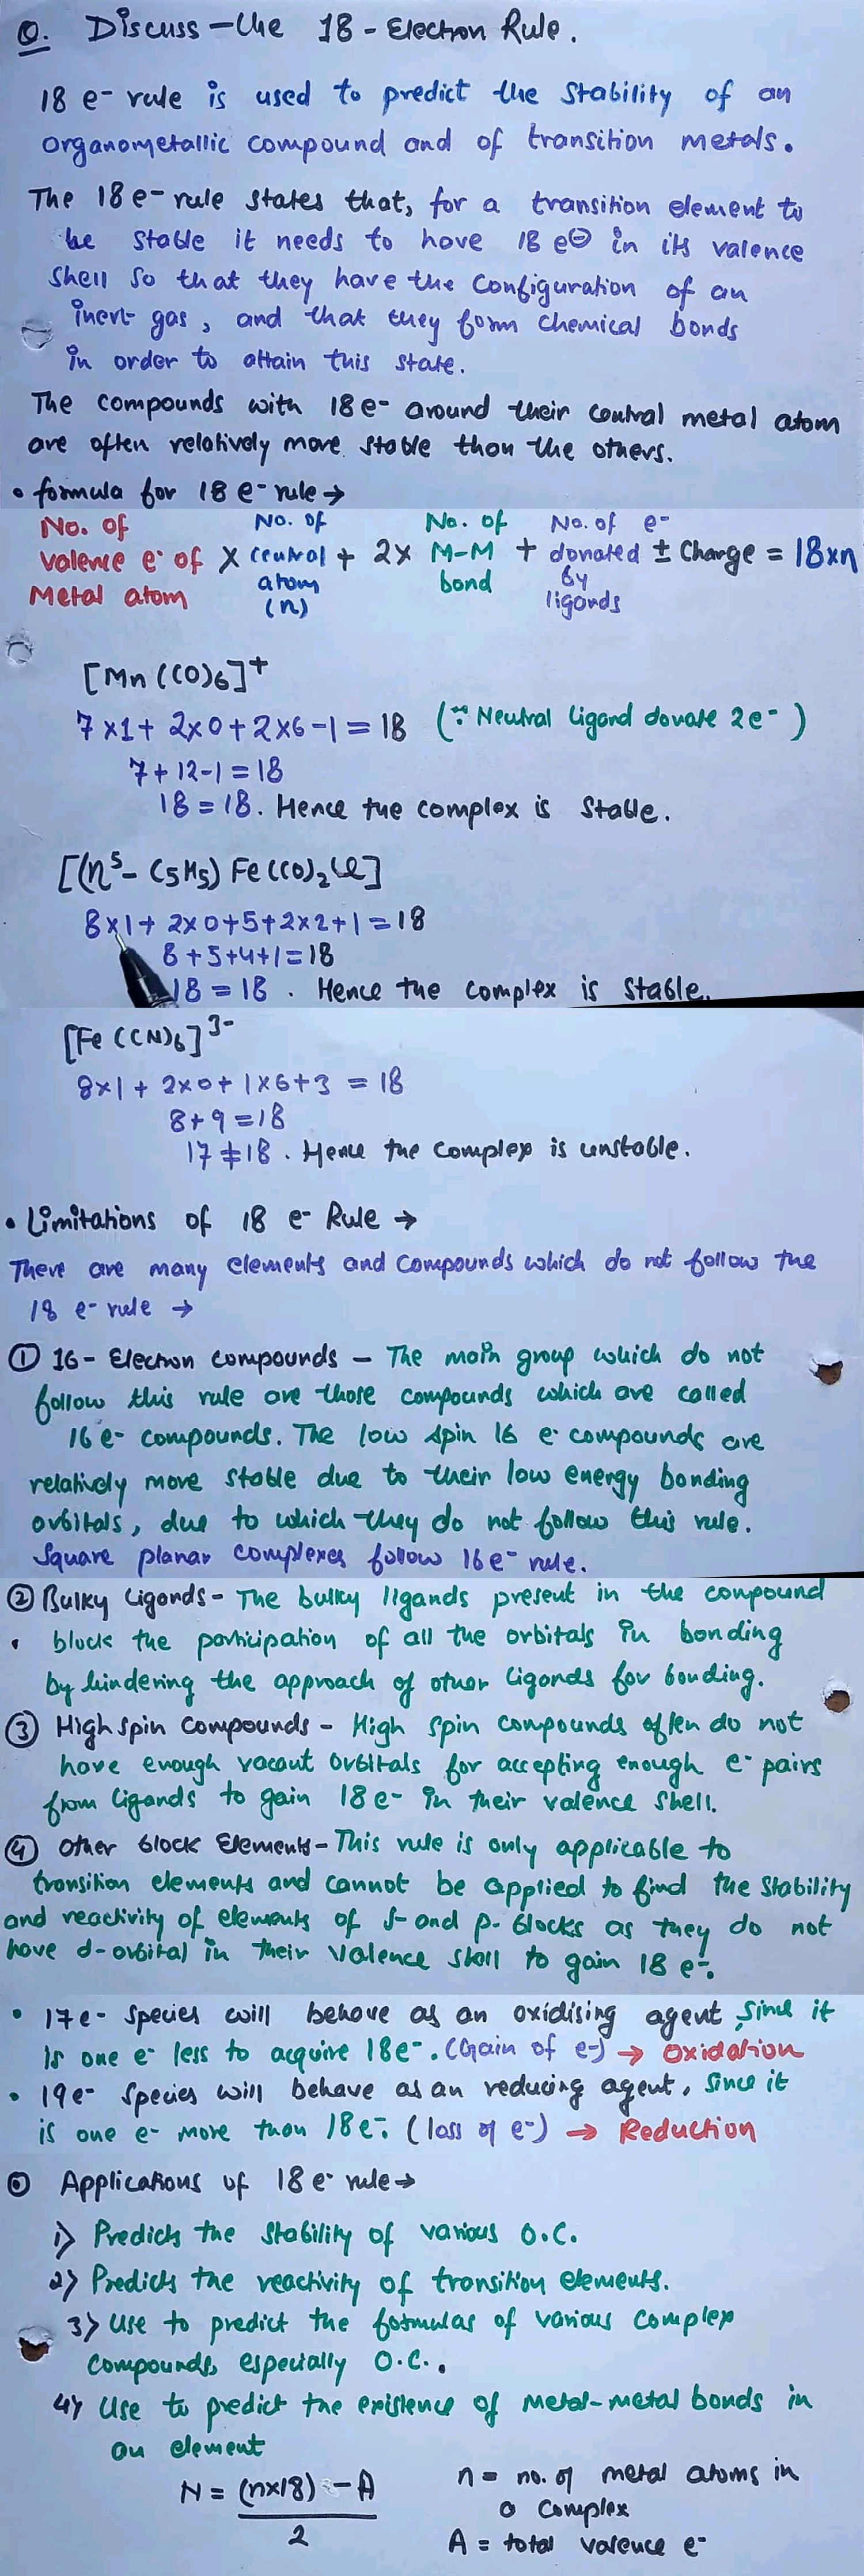 Q. Discuss the 18-Electron Rule.
18 e- rule is used to predict the stability of an
organometallic compound and of transition metals.
The 18 e- rule states that, for a transition element to
be stable it needs to have 18 e⊖ in its valence
shell so that they have the configuration of an
inert gas, and that they form chemical bonds
in order to attain this state.
The compounds with 18 e- around their central metal atom
are often relatively more stable than the others.
• formula for 18 e- rule →
No. of Valence e- of Metal atom × No. of central atom (n) + 2× No. of M-M bond + No. of e- donated by ligands ± Charge = 18×n
[Mn(CO)6]+
7×1+ 2×0+2×6-1 = 18 (∵ Neutral ligand donate 2e-)
7+12-1 = 18
18 = 18. Hence the complex is stable.
[(η5-C5H5) Fe(CO)2Cl]
8×1+ 2×0+5+2×2+1 = 18
8+5+4+1 = 18
18 = 18. Hence the complex is stable.
[Fe(CN)6]3-
8×1 + 2×0+ 1×6+3 = 18
8+9 = 18
17 ≠ 18. Hence the complex is unstable.
• Limitations of 18 e- Rule →
There are many elements and compounds which do not follow the
18 e- rule →
① 16- Electron compounds - The main group which do not
follow this rule are those compounds which are called
16 e- compounds. The low spin 16 e- compounds are
relatively more stable due to their low energy bonding
orbitals, due to which they do not follow this rule.
Square planar complexes follow 16e- rule.
② Bulky Ligands- The bulky ligands present in the compound
block the participation of all the orbitals in bonding
by hindering the approach of other ligands for bonding.
③ High spin Compounds - High spin compounds often do not
have enough vacant orbitals for accepting enough e- pairs
from ligands to gain 18 e- in their valence shell.
④ Other block Elements- This rule is only applicable to
transition elements and cannot be applied to find the stability
and reactivity of elements of s- and p- blocks as they do not
have d-orbital in their valence shell to gain 18 e-.
• 17e- species will behave as an oxidising agent, since it
is one e- less to acquire 18e-. (Gain of e-) → Oxidation
• 19e- species will behave as an reducing agent, since it
is one e- more than 18e-. (loss of e-) → Reduction
⊙ Applications of 18 e- rule →
1) Predicts the stability of various O.C.
2) Predicts the reactivity of transition elements.
3) Use to predict the formulas of various complex
compounds, especially O.C..
4) Use to predict the existence of metal-metal bonds in
an element
N = (n×18) - A / 2
n = no. of metal atoms in
a complex
A = total valence e-